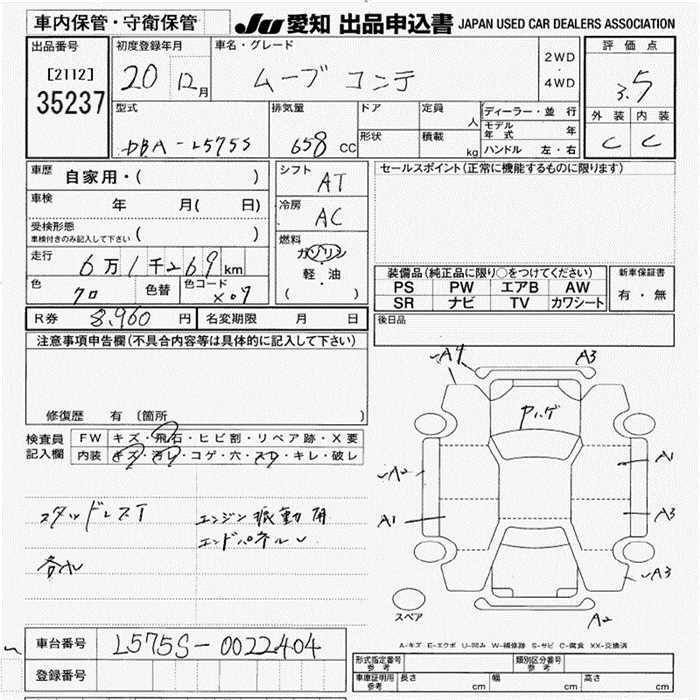 車内保管・守衛保管
JU 愛知 出品申込書 JAPAN USED CAR DEALERS ASSOCIATION
出品番号
[2112]
35237
初度登録年月
20 12月
車名・グレード
ムーブ コンテ
2WD
・
4WD
評価点
3.5
外装 内装
C C
型式
DBA-L575S
排気量
658 CC
ドア
形状
定員
人
積載
kg
ディーラー・並行
モデル年式 年
ハンドル 左・右
車歴 自家用・( )
車検 年 月( 日)
受検形態
車検付きのみ記入して下さい ( )
走行 6万1千269km
色 クロ 色替 色コード X07
シフト AT
冷房 AC
燃料
ガソリン
・
軽・油
( )
セールスポイント(正常に機能するものに限ります)
装備品(純正品に限り○をつけてください)
PS PW エアB AW
SR ナビ TV カワシート
新車保証書
有・無
R券 8,960円 名変期限 月 日
後日品
注意事項申告欄(不具合内容等は具体的に記入して下さい)
修復歴 有 〔箇所 〕
検査員
記入欄
FW キズ・飛石・ヒビ割・リペア跡・X要
内装 キズ・汚レ・コゲ・穴・スレ・キレ・破レ
スタッドレスT
エンジン振動有
エンドパネルU
A4
A3
ヤハゲ
A2
A1
A1
A3
A3
A2
スペア
A-キズ E-エクボ U-凹み W-補修跡 S-サビ C-腐食 XX-交換済
車台番号 L575S-0022404
登録番号
形式指定番号
参考
類別区分番号
参考
車庫証明用
参考
長さ cm 幅 cm 高さ cm